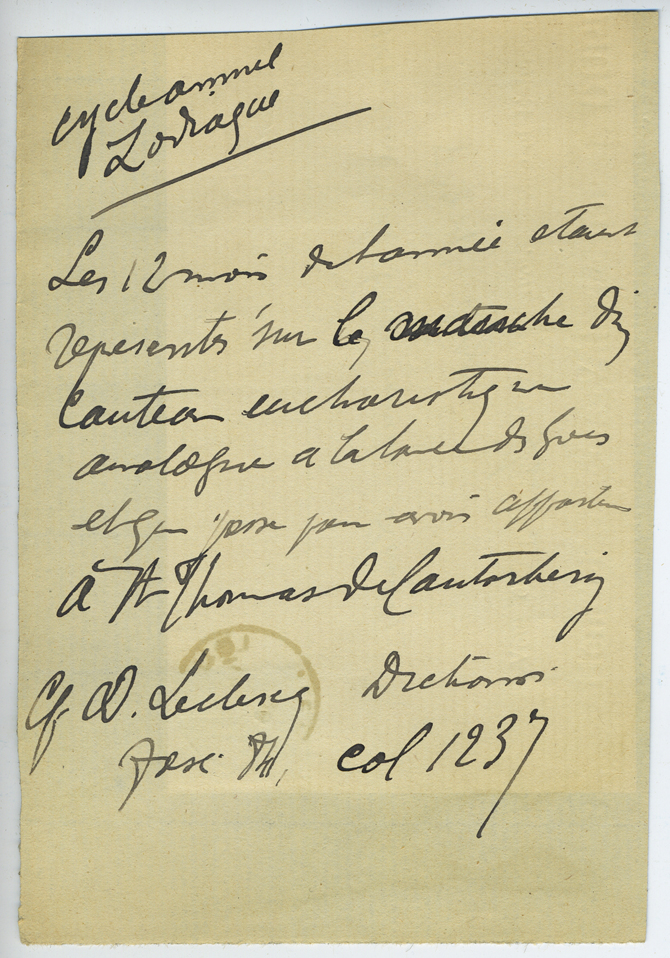 cycle annuel
Zodiaque
Les 12 mois de l'année étant
représentés sur le manche du
couteau eucharistique
analogue a
et qui passe pour avoir appartenu
à St Thomas de Cantorbéry
Cf D. Leclercq Dictionn.
fasc. col 1237